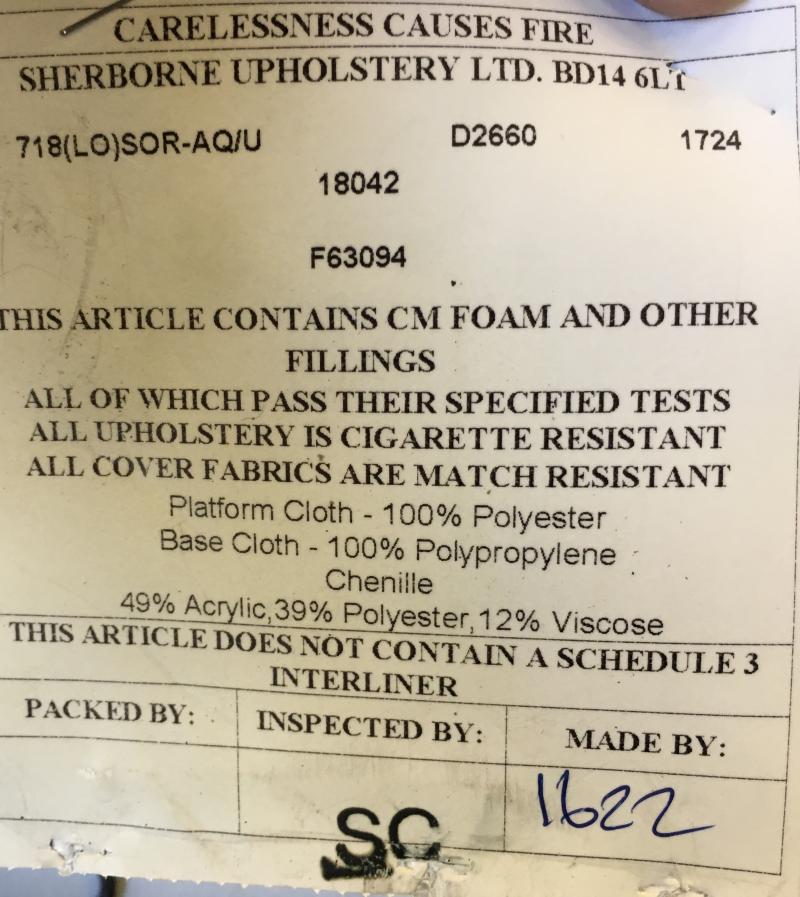 CARELESSNESS CAUSES FIRE
SHERBORNE UPHOLSTERY LTD. BD14 6LT
718(LO)SOR-AQ/U D2660 1724
18042
F63094
THIS ARTICLE CONTAINS CM FOAM AND OTHER
FILLINGS
ALL OF WHICH PASS THEIR SPECIFIED TESTS
ALL UPHOLSTERY IS CIGARETTE RESISTANT
ALL COVER FABRICS ARE MATCH RESISTANT
Platform Cloth - 100% Polyester
Base Cloth - 100% Polypropylene
Chenille
49% Acrylic,39% Polyester,12% Viscose
THIS ARTICLE DOES NOT CONTAIN A SCHEDULE 3
INTERLINER
PACKED BY: INSPECTED BY: MADE BY:
1622
SC